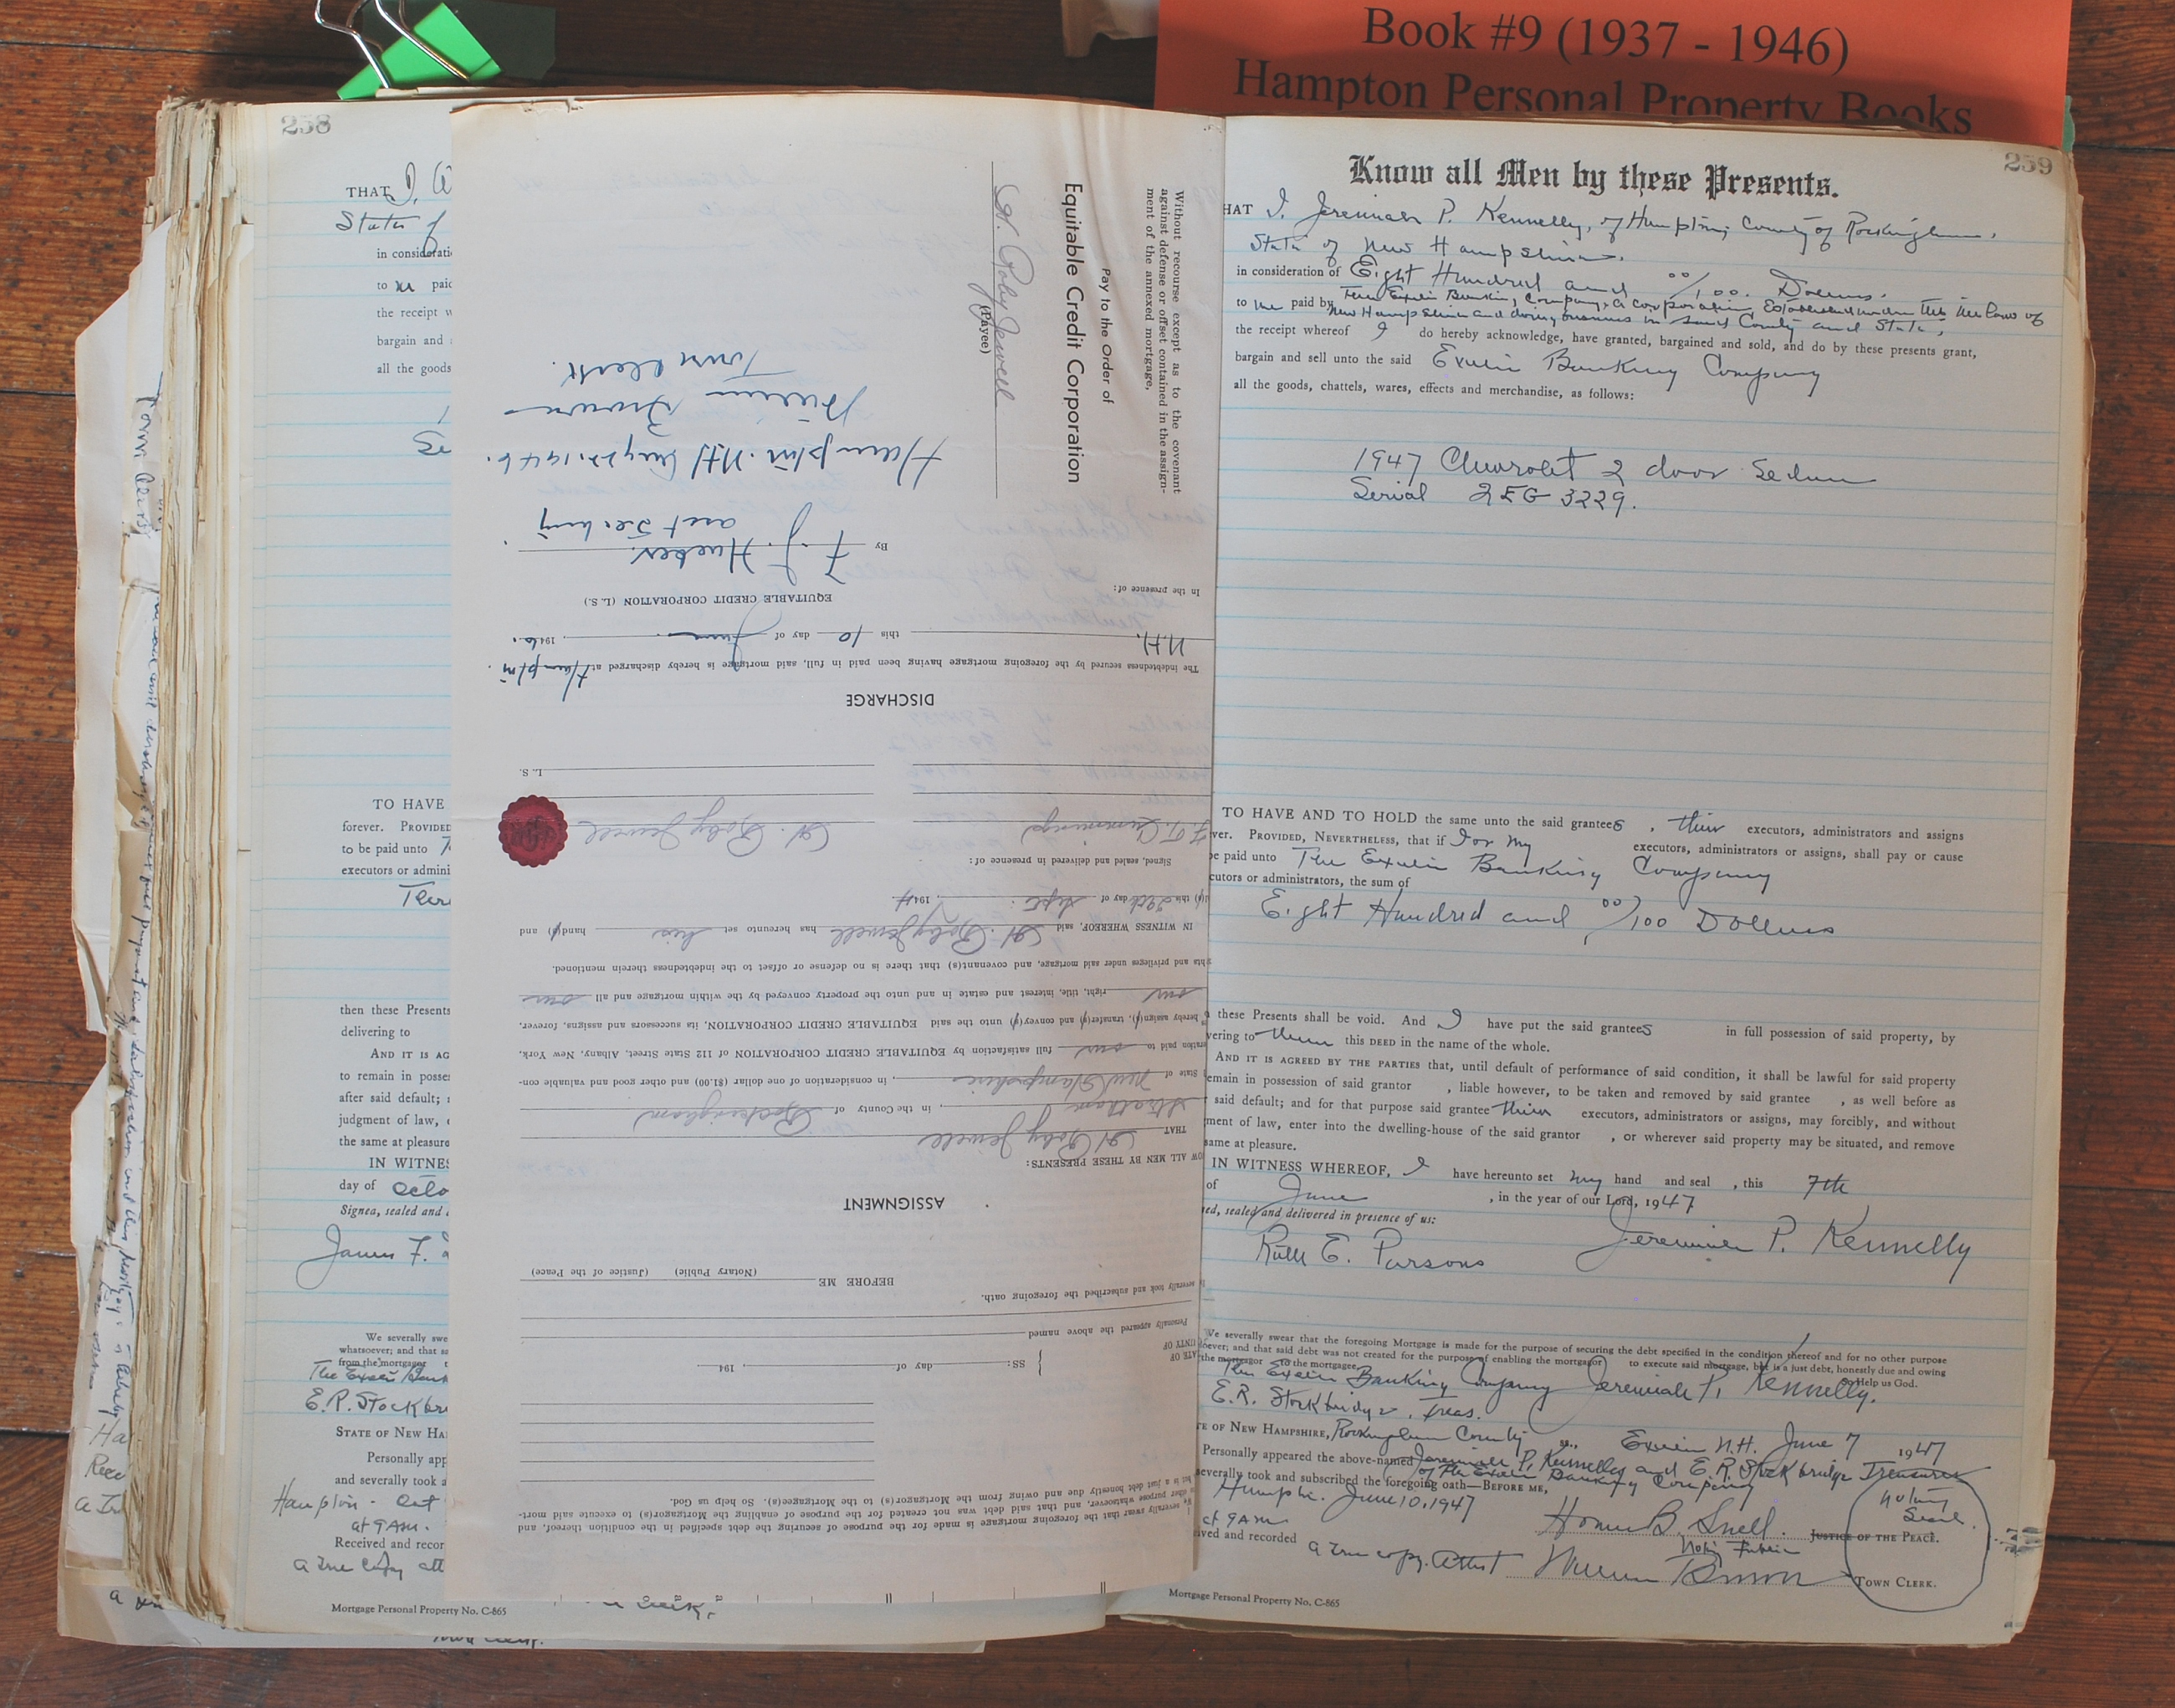 Book #9 (1937 - 1946)
Hampton Personal Property Books
258
THAT I,
State of
in considerati
to me paid
the receipt w
bargain and
all the goods
TO HAVE
forever. PROVIDED
to be paid unto
executors or admini
then these Presents
delivering to
AND IT IS AG
to remain in posse
after said default;
judgment of law,
the same at pleasure
IN WITNE
day of Octo
Signed, sealed and
James F.
We severally swe
whatsoever; and that sa
from the mortgagor
The Exeter Bank
E.R. Stockbri
STATE OF NEW HA
Personally app
and severally took a
Hampton - Oct
at 9 AM.
Received and recor
a True Copy att
Mortgage Personal Property No. C-865
Without recourse except as to the covenant
against defense or offset contained in the assign-
ment of the annexed mortgage,
Pay to the Order of
Equitable Credit Corporation
H. Roby Jewell
(Payee)
We severally swear that the foregoing mortgage is made for the purpose of securing the debt specified in the condition thereof, and
other purpose whatsoever, and that said debt was not created for the purpose of enabling the Mortgagor(s) to execute said mort-
but is a just debt honestly due and owing from the Mortgagor(s) to the Mortgagee(s). So help us God.
ATE OF
UNTY OF
SS: day of , 194
Personally appeared the above named
severally took and subscribed the foregoing oath.
BEFORE ME (Notary Public) (Justice of the Peace)
ASSIGNMENT
OW ALL MEN BY THESE PRESENTS:
THAT H Roby Jewell
Stratham, in the County of Rockingham
State of New Hampshire, in consideration of one dollar ($1.00) and other good and valuable con-
eration paid to our full satisfaction by EQUITABLE CREDIT CORPORATION of 112 State Street, Albany, New York,
hereby assign(s), transfer(s) and convey(s) unto the said EQUITABLE CREDIT CORPORATION, its successors and assigns, forever,
our right, title, interest and estate in and unto the property conveyed by the within mortgage and all our
hts and privileges under said mortgage, and covenant(s) that there is no defense or offset to the indebtedness therein mentioned.
IN WITNESS WHEREOF, said H. Roby Jewell has hereunto set his hand(s) and
(s) this 29th day of Sept. , 1944
Signed, sealed and delivered in presence of:
F. T. Cummings H. Roby Jewell
L. S.
DISCHARGE
The indebtedness secured by the foregoing mortgage having been paid in full, said mortgage is hereby discharged at Hampton
N.H. this 10 day of June , 1946.
EQUITABLE CREDIT CORPORATION (L. S.)
In the presence of:
By F. J. Hueber.
asst Sec.
Hampton. N.H
William Brown
Town Clerk.
259
Know all Men by these Presents.
HAT I, Jeremiah P. Kennelly, of Hampton, County of Rockingham,
State of New Hampshire.
in consideration of Eight Hundred and 00/100. Dollars.
to me paid by The Exeter Banking Company, a corporation, Established under the laws of
New Hampshire and doing business in said County and State,
the receipt whereof I do hereby acknowledge, have granted, bargained and sold, and do by these presents grant,
bargain and sell unto the said Exeter Banking Company
all the goods, chattels, wares, effects and merchandise, as follows:
1947 Chevrolet 2 door Sedan
Serial 2EG 3229.
TO HAVE AND TO HOLD the same unto the said grantees , their executors, administrators and assigns
ver. PROVIDED, NEVERTHELESS, that if I or my executors, administrators or assigns, shall pay or cause
be paid unto The Exeter Banking Company
cutors or administrators, the sum of
Eight Hundred and 00/100 Dollars
these Presents shall be void. And I have put the said grantees in full possession of said property, by
vering to them this DEED in the name of the whole.
AND IT IS AGREED BY THE PARTIES that, until default of performance of said condition, it shall be lawful for said property
emain in possession of said grantor , liable however, to be taken and removed by said grantee , as well before as
said default; and for that purpose said grantee their executors, administrators or assigns, may forcibly, and without
ment of law, enter into the dwelling-house of the said grantor , or wherever said property may be situated, and remove
same at pleasure.
IN WITNESS WHEREOF, I have hereunto set my hand and seal , this 7th
of June , in the year of our Lord, 1947
ed, sealed and delivered in presence of us:
Ruth E. Parsons Jeremiah P. Kennelly
We severally swear that the foregoing Mortgage is made for the purpose of securing the debt specified in the condition thereof and for no other purpose
soever; and that said debt was not created for the purpose of enabling the mortgagor to execute said mortgage, but is a just debt, honestly due and owing
the mortgagor to the mortgagee. So Help us God.
The Exeter Banking Company Jeremiah P. Kennelly.
E.R. Stockbridge, Treas.
TE OF NEW HAMPSHIRE, Rockingham County ss., Exeter N.H. June 7 1947
Personally appeared the above-named Jeremiah P. Kennelly and E.R. Stockbridge Treasurer
of the Exeter Banking Company
severally took and subscribed the foregoing oath—BEFORE ME,
Hampton. June 10, 1947
at 9 AM
Homer B. Snell. JUSTICE OF THE PEACE.
Notary Public
Notary Seal.
ived and recorded a True copy. Attest William Brown TOWN CLERK.
Mortgage Personal Property No. C-865